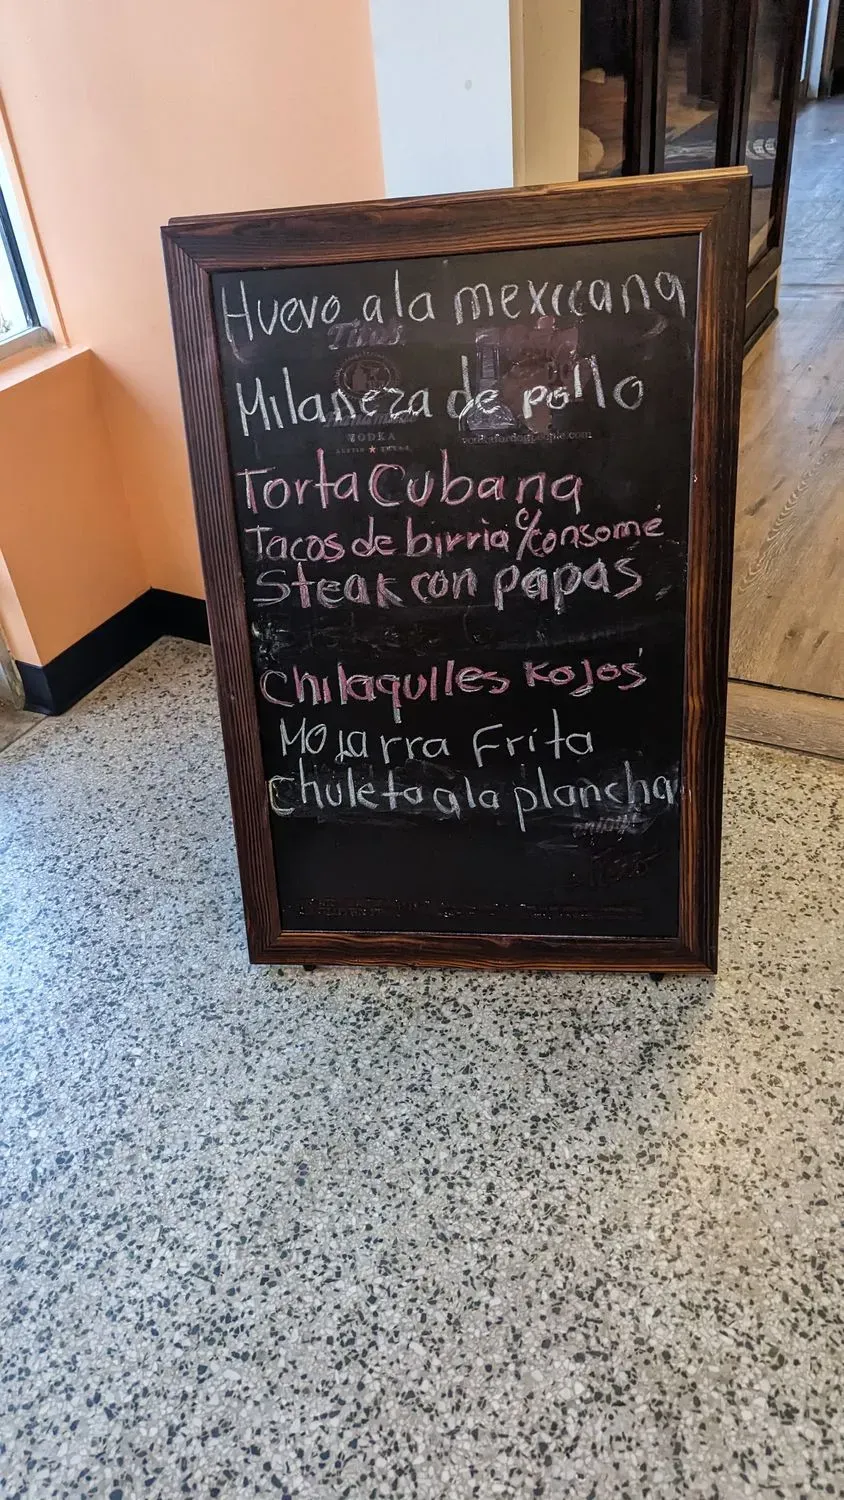 Huevo a la mexicana
Tito's
Milaneza de pollo
VODKA
AUSTIN ★ TEXAS
vodkafordogpeople.com
Torta Cubana
Tacos de birria c/consomé
Steak con papas
Chilaquiles Rojos
Mojarra Frita
Chuleta a la plancha
enjoy!